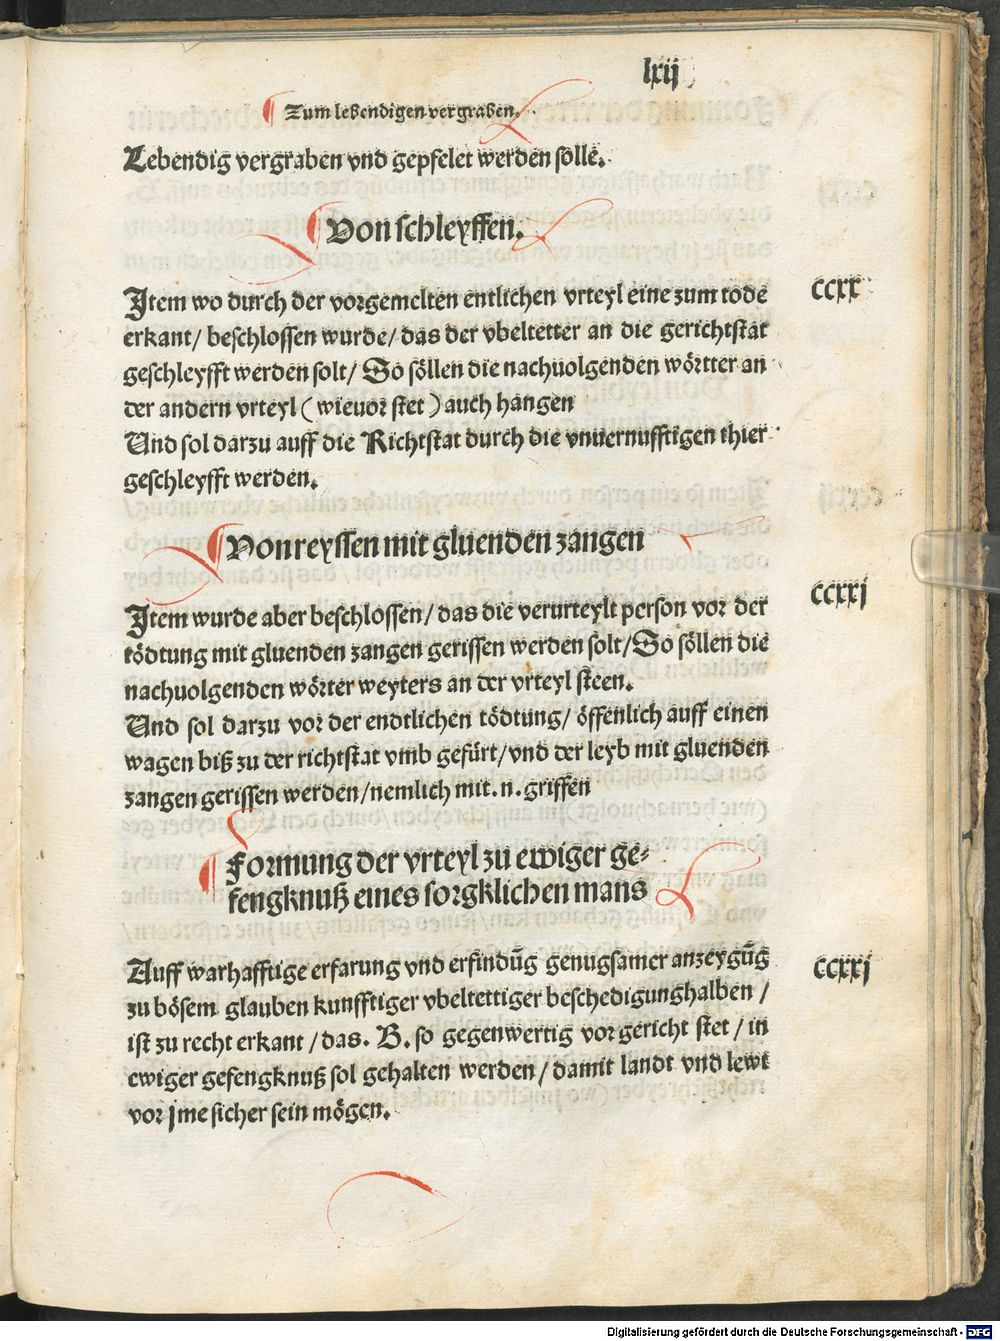 lxij
Zum lebendigen vergraben.
Lebendig vergraben vnd gepfelet werden solle.
Von schleyffen.
Jtem wo durch der vorgemelten entlichen vrteyl eine zum tode
ccxx
erkant/ beschlossen wurde/ das der vbeltetter an die gerichtstat
geschleyfft werden solt/ So söllen die nachuolgenden wörtter an
der andern vrteyl (wieuor stet) auch hangen
Und sol darzu auff die Richtstat durch die vnuernufftigen thier
geschleyfft werden.
Von reyssen mit gluenden zangen
Jtem wurde aber beschlossen/ das die verurteylt person vor der
ccxxj
tödtung mit gluenden zangen gerissen werden solt/ So söllen die
nachuolgenden wörter weyters an der vrteyl steen.
Und sol darzu vor der endtlichen tödtung/ öffenlich auff einen
wagen biß zu der richtstat vmb gefürt/ vnd der leyb mit gluenden
zangen gerissen werden/ nemlich mit. n. griffen
Formung der vrteyl zu ewiger ge⸗
fengknuß eines sorgklichen mans
Auff warhafftige erfarung vnd erfindūg genugsamer anzeygūg
ccxxj
zu bösem glauben kunfftiger vbeltettiger beschedigunghalben /
ist zu recht erkant / das. B. so gegenwertig vor gericht stet / in
ewiger gefengknuß sol gehalten werden / damit landt vnd lewt
vor jme sicher sein mögen.
Digitalisierung gefördert durch die Deutsche Forschungsgemeinschaft - DFG